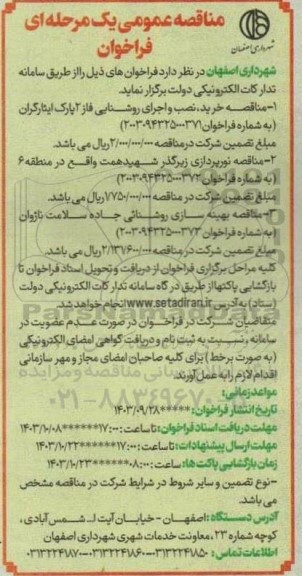 مناقصه عمومی یک مرحله ای
فراخوان
شهرداری اصفهان
شهرداری اصفهان در نظر دارد فراخوان های ذیل را از طریق سامانه
تدارکات الکترونیکی دولت برگزار نماید.
۱-مناقصه خرید، نصب و اجرای روشنایی فاز ۲ پارک ایثارگران
(به شماره فراخوان ۲۰۰۳۰۹۴۳۲۵۰۰۰۳۷۱)
مبلغ تضمین شرکت در مناقصه ۲/۰۰۰/۰۰۰/۰۰۰ ریال می باشد.
۲-مناقصه نورپردازی زیرگذر شهیدهمت واقع در منطقه ۶
(به شماره فراخوان ۲۰۰۳۰۹۴۳۲۵۰۰۰۳۷۲)
مبلغ تضمین شرکت در مناقصه ۷۷۵۰/۰۰۰/۰۰۰ ریال می باشد.
۳-مناقصه بهینه سازی روشنائی جاده سلامت ناژوان
(به شماره فراخوان ۲۰۰۳۰۹۴۳۲۵۰۰۰۳۷۳)
مبلغ تضمین شرکت در مناقصه ۲/۱۳۷/۶۰۰/۰۰۰ ریال می باشد.
کلیه مراحل برگزاری فراخوان از دریافت و تحویل اسناد فراخوان تا
بازگشایی پاکتها از طریق درگاه سامانه تدارکات الکترونیکی دولت
(ستاد) به آدرس www.setadiran.ir انجام خواهد شد.
متقاضیان شرکت در فراخوان در صورت عدم عضویت در
سامانه، نسبت به ثبت نام و دریافت گواهی امضای الکترونیکی
(به صورت برخط) برای کلیه صاحبان امضای مجاز و مهر سازمانی
اقدام لازم را به عمل آورند.
مواعد زمانی:
تاریخ انتشار فراخوان: *****۱۴۰۳/۰۹/۲۸
مهلت دریافت اسناد فراخوان: تا ساعت: ۱۷:۰۰******۱۴۰۳/۱۰/۰۸
مهلت ارسال پیشنهادات: تا ساعت: ۱۷:۰۰******۱۴۰۳/۱۰/۲۲
زمان بازگشایی پاکت ها: ساعت: ۰۸:۰۰******۱۴۰۳/۱۰/۲۳
-نوع تضمین و سایر شروط در شرایط شرکت در مناقصه مشخص
می باشد.
آدرس دستگاه: اصفهان - خیابان آیت ا... شمس آبادی،
کوچه شماره ۲۳، معاونت خدمات شهری شهرداری اصفهان
اطلاعات تماس: ۰۳۱۳۲۲۴۱۸۵۰-۰۳۱۳۲۲۴۱۸۶۰-۰۳۱۳۲۲۴۱۸۷۰